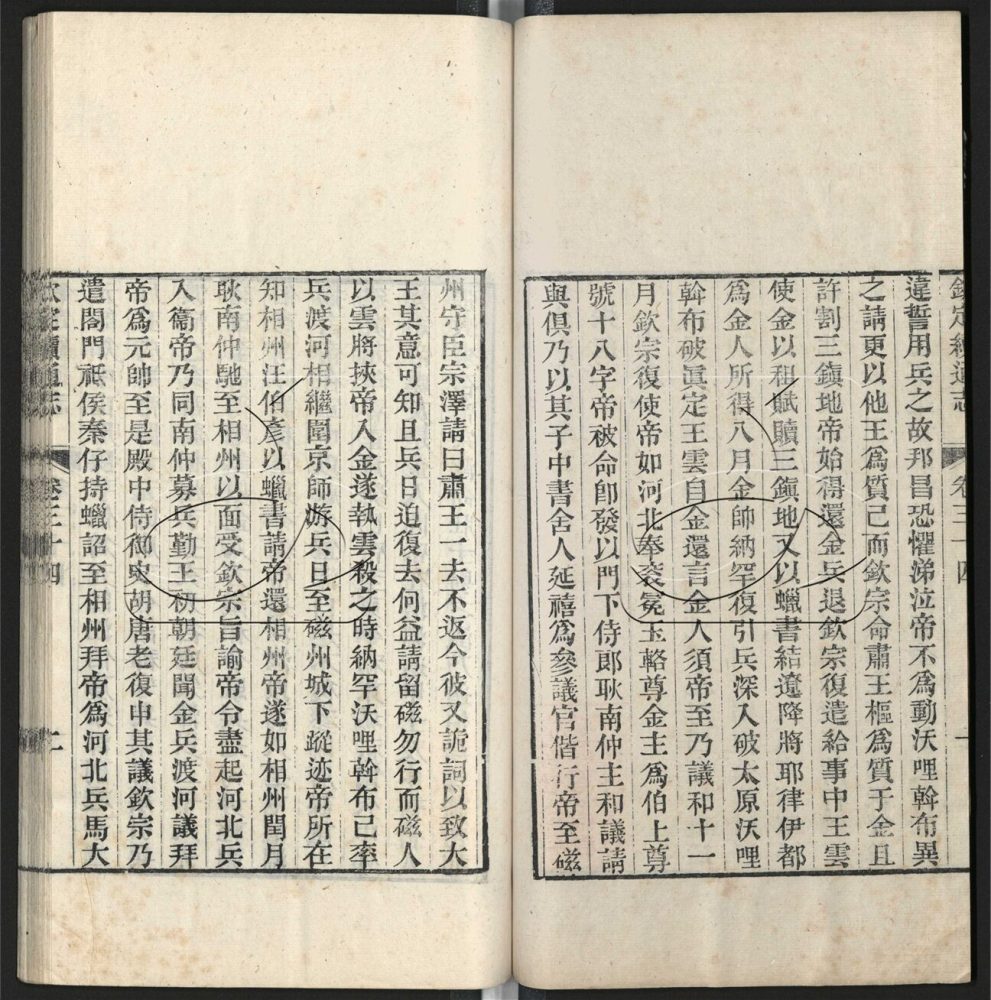 欽定續通志 卷三十四 一
違誓用兵之故邦昌恐懼涕泣帝不爲動沃哩斡布異
之請更以他王爲質已而欽宗命肅王樞爲質于金且
許割三鎮地帝始得還金兵退欽宗復遣給事中王雲
使金以租賦贖三鎮地又以蠟書結遼降將耶律伊都
爲金人所得八月金帥納罕復引兵深入破太原沃哩
斡布破眞定王雲自金還言金人須帝至乃議和十一
月欽宗復使帝如河北奉袞冕玉輅尊金主爲伯上尊
號十八字帝被命卽發以門下侍郎耿南仲主和議請
與俱乃以其子中書舍人延禧爲參議官偕行帝至磁
州守臣宗澤請曰肅王一去不返今彼又詭詞以致大
王其意可知且兵日迫復去何益請留磁勿行而磁人
以雲將挾帝入金遂執雲殺之時納罕沃哩斡布已率
兵渡河相繼圍京師游兵日至磁州城下蹤迹帝所在
知相州汪伯彥以蠟書請帝還相州帝遂如相州閏月
耿南仲馳至相州以面受欽宗旨諭帝令盡起河北兵
入衞帝乃同南仲募兵勤王初朝廷聞金兵渡河議拜
帝爲元帥至是殿中侍御史胡唐老復申其議欽宗乃
遣閤門祗侯秦仔持蠟詔至相州拜帝爲河北兵馬大
欽定續通志 卷三十四 二